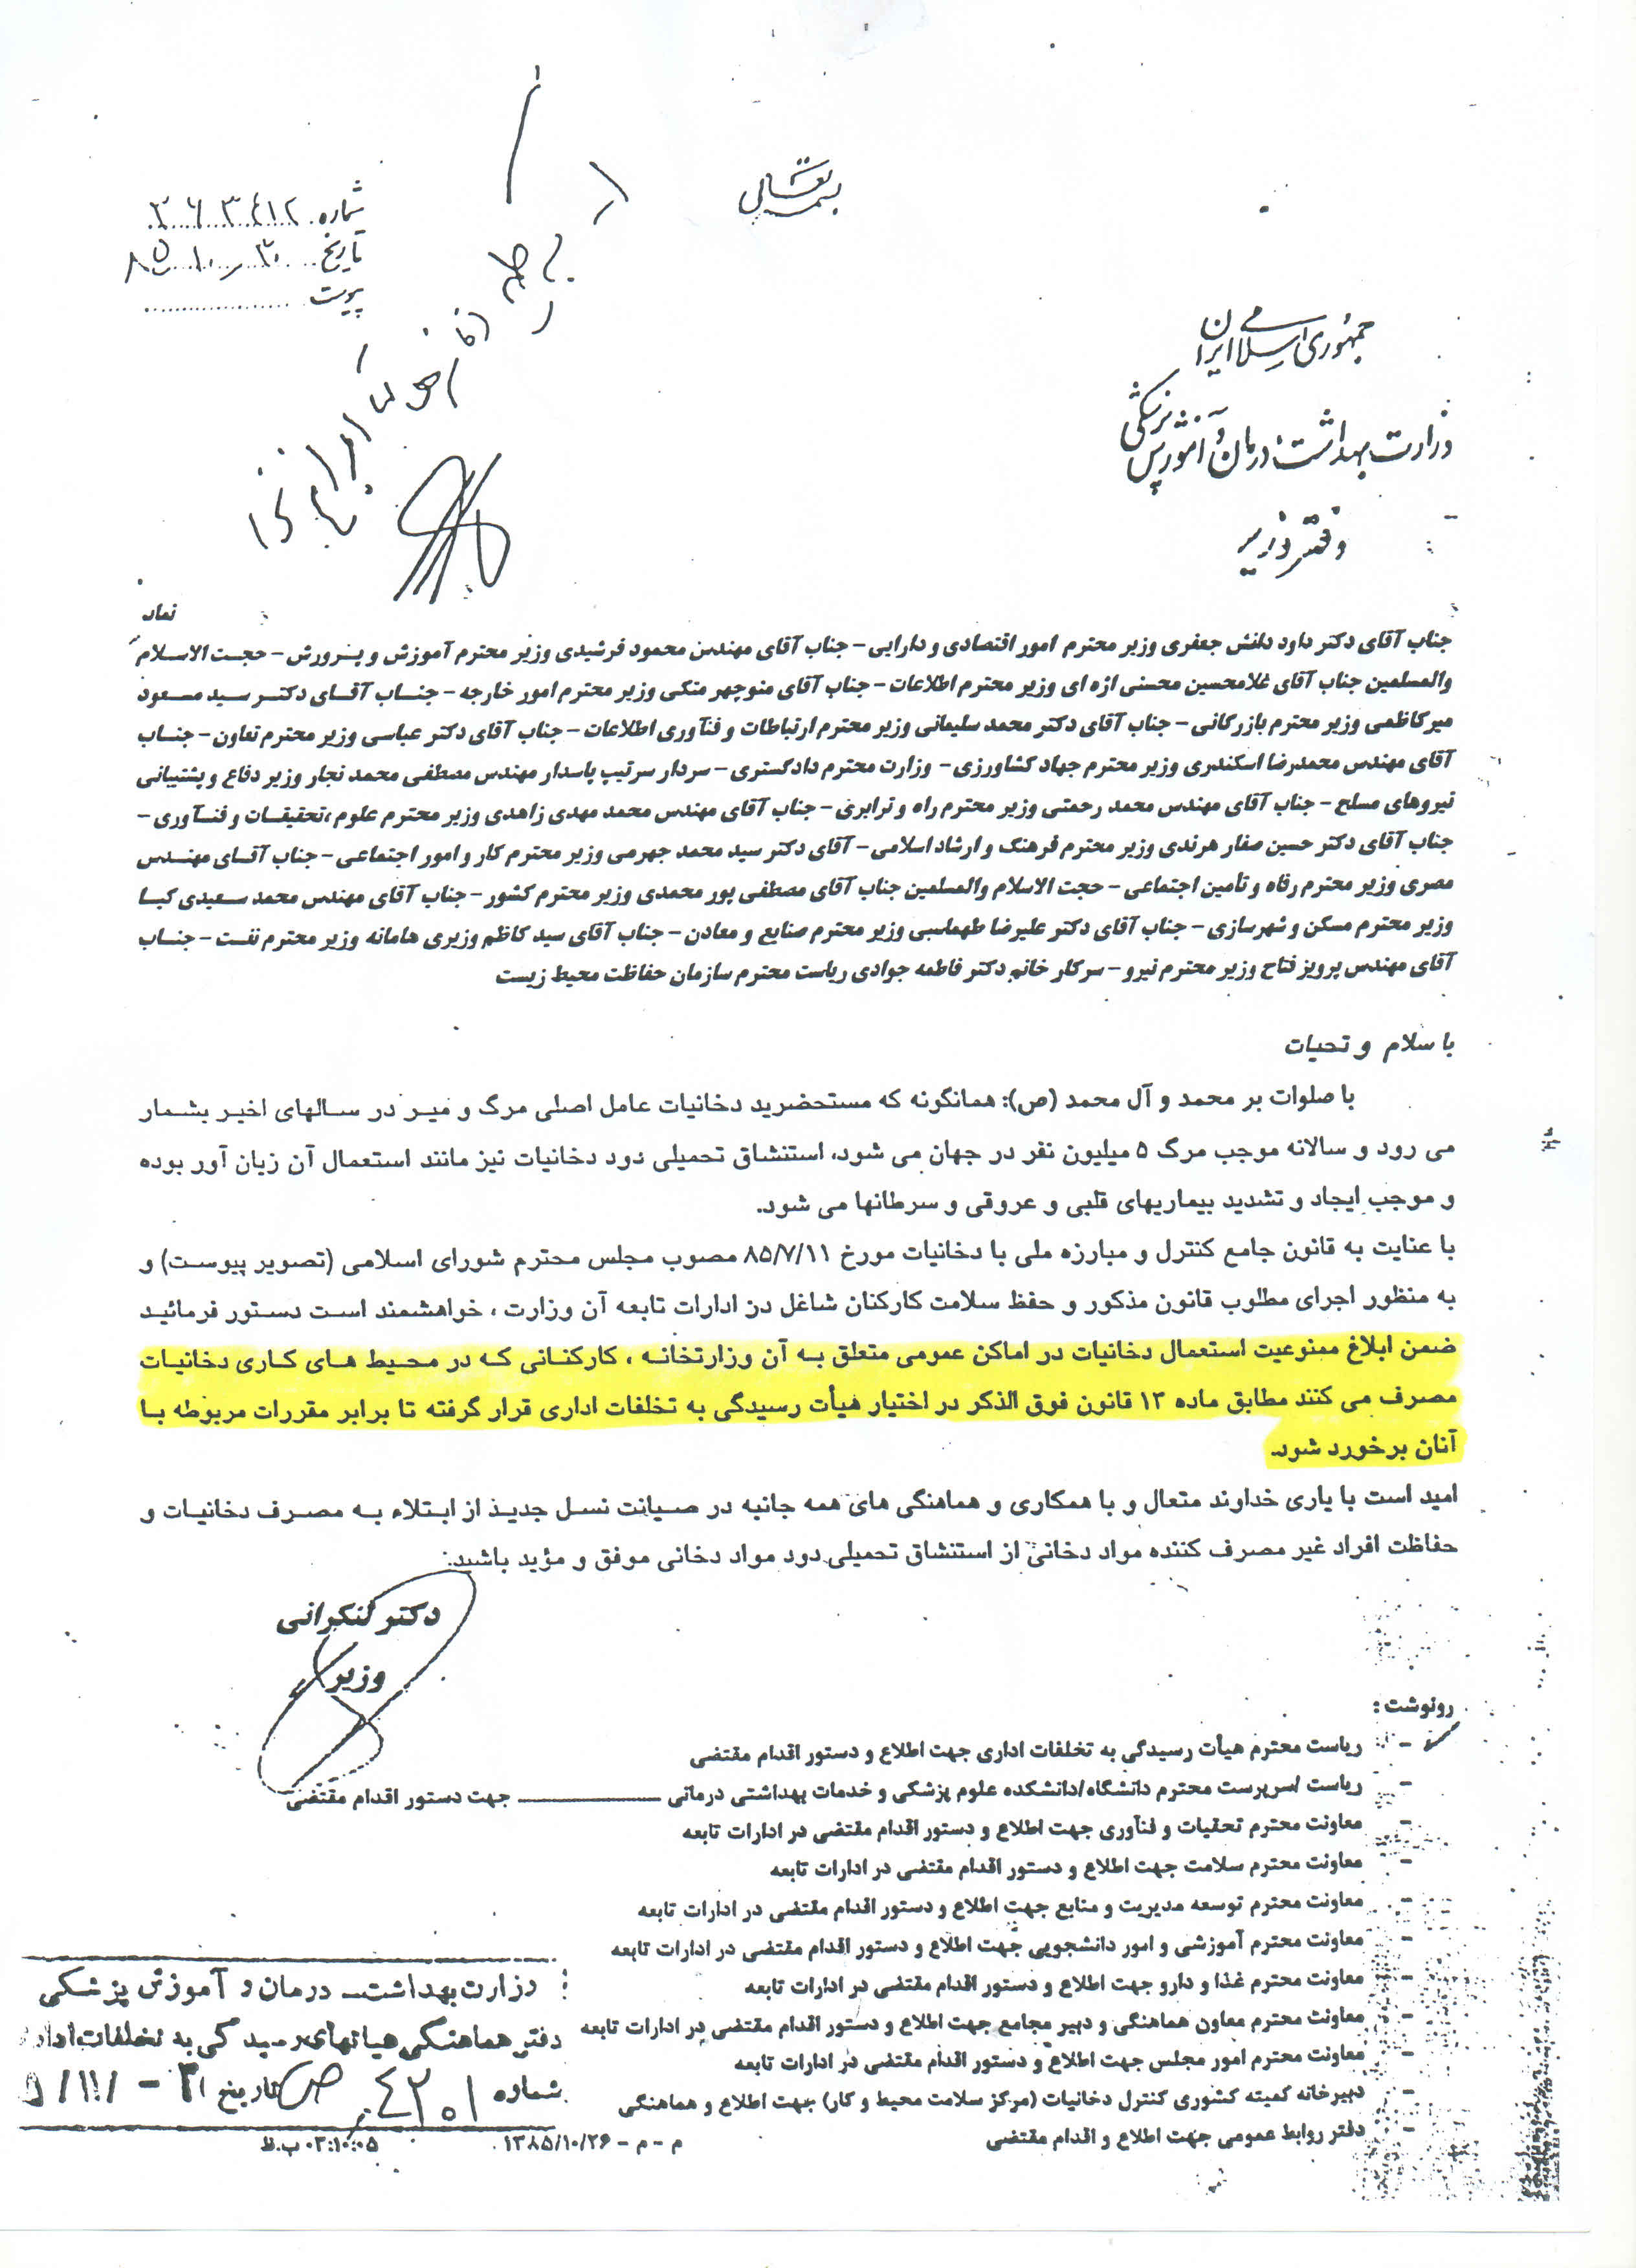 بسمه تعالی
شماره
تاریخ ۳۰ر۱۰ر۸۵
پیوست
جمهوری اسلامی ایران
وزارت بهداشت، درمان و آموزش پزشکی
دفتر وزیر
نماد
جناب آقای دکتر داود دانش جعفری وزیر محترم امور اقتصادی و دارایی - جناب آقای مهندس محمود فرشیدی وزیر محترم آموزش و پرورش - حجت الاسلام
والمسلمین جناب آقای غلامحسین محسنی اژه ای وزیر محترم اطلاعات - جناب آقای منوچهر متکی وزیر محترم امور خارجه - جناب آقای دکتر سید مسعود
میرکاظمی وزیر محترم بازرگانی - جناب آقای دکتر محمد سلیمانی وزیر محترم ارتباطات و فنآوری اطلاعات - جناب آقای دکتر عباسی وزیر محترم تعاون - جناب
آقای مهندس محمدرضا اسکندری وزیر محترم جهاد کشاورزی - وزارت محترم دادگستری - سردار سرتیپ پاسدار مهندس مصطفی محمد نجار وزیر دفاع و پشتیبانی
نیروهای مسلح - جناب آقای مهندس محمد رحمتی وزیر محترم راه و ترابری - جناب آقای مهندس محمد مهدی زاهدی وزیر محترم علوم ،تحقیقات و فنآوری -
جناب آقای دکتر حسین صفار هرندی وزیر محترم فرهنگ و ارشاد اسلامی - آقای دکتر سید محمد جهرمی وزیر محترم کار و امور اجتماعی - جناب آقای مهندس
مصری وزیر محترم رفاه و تأمین اجتماعی - حجت الاسلام والمسلمین جناب آقای مصطفی پور محمدی وزیر محترم کشور - جناب آقای مهندس محمد سعیدی کیا
وزیر محترم مسکن و شهرسازی - جناب آقای دکتر علیرضا طهماسبی وزیر محترم صنایع و معادن - جناب آقای سید کاظم وزیری هامانه وزیر محترم نفت - جناب
آقای مهندس پرویز فتاح وزیر محترم نیرو - سرکار خانم دکتر فاطمه جوادی ریاست محترم سازمان حفاظت محیط زیست
با سلام و تحیات
با صلوات بر محمد و آل محمد (ص): همانگونه که مستحضرید دخانیات عامل اصلی مرگ و میر در سالهای اخیر بشمار
می رود و سالانه موجب مرگ ۵ میلیون نفر در جهان می شود، استنشاق تحمیلی دود دخانیات نیز مانند استعمال آن زیان آور بوده
و موجب ایجاد و تشدید بیماریهای قلبی و عروقی و سرطانها می شود.
با عنایت به قانون جامع کنترل و مبارزه ملی با دخانیات مورخ ۸۵/۷/۱۱ مصوب مجلس محترم شورای اسلامی (تصویر پیوست) و
به منظور اجرای مطلوب قانون مذکور و حفظ سلامت کارکنان شاغل در ادارات تابعه آن وزارت ، خواهشمند است دستور فرمائید
ضمن ابلاغ ممنوعیت استعمال دخانیات در اماکن عمومی متعلق به آن وزارتخانه ، کارکنانی که در محیط های کاری دخانیات
مصرف می کنند مطابق ماده ۱۳ قانون فوق الذکر در اختیار هیأت رسیدگی به تخلفات اداری قرار گرفته تا برابر مقررات مربوطه با
آنان برخورد شود.
امید است با یاری خداوند متعال و با همکاری و هماهنگی های همه جانبه در صیانت نسل جدید از ابتلاء به مصرف دخانیات و
حفاظت افراد غیر مصرف کننده مواد دخانی از استنشاق تحمیلی دود مواد دخانی موفق و مؤید باشید.
دکتر لنکرانی
وزیر
رونوشت :
- ریاست محترم هیأت رسیدگی به تخلفات اداری جهت اطلاع و دستور اقدام مقتضی
- ریاست /سرپرست محترم دانشگاه/دانشکده علوم پزشکی و خدمات بهداشتی درمانی ــــــــــــ جهت دستور اقدام مقتضی
- معاونت محترم تحقیات و فنآوری جهت اطلاع و دستور اقدام مقتضی در ادارات تابعه
- معاونت محترم سلامت جهت اطلاع و دستور اقدام مقتضی در ادارات تابعه
- معاونت محترم توسعه مدیریت و منابع جهت اطلاع و دستور اقدام مقتضی در ادارات تابعه
- معاونت محترم آموزشی و امور دانشجویی جهت اطلاع و دستور اقدام مقتضی در ادارات تابعه
- معاونت محترم غذا و دارو جهت اطلاع و دستور اقدام مقتضی در ادارات تابعه
- معاونت محترم معاون هماهنگی و دبیر مجامع جهت اطلاع و دستور اقدام مقتضی در ادارات تابعه
- معاونت محترم امور مجلس جهت اطلاع و دستور اقدام مقتضی در ادارات تابعه
- دبیرخانه کمیته کشوری کنترل دخانیات (مرکز سلامت محیط و کار) جهت اطلاع و هماهنگی
- دفتر روابط عمومی جهت اطلاع و اقدام مقتضی
م - م - ۱۳۸۵/۱۰/۲۶ ۰۳:۱۰:۰۵ ب.ظ
وزارت بهداشت ـ درمان و آموزش پزشکی
دفتر هماهنگی هیاتهای رسیدگی به تخلفات ادار
شماره
تاریخ